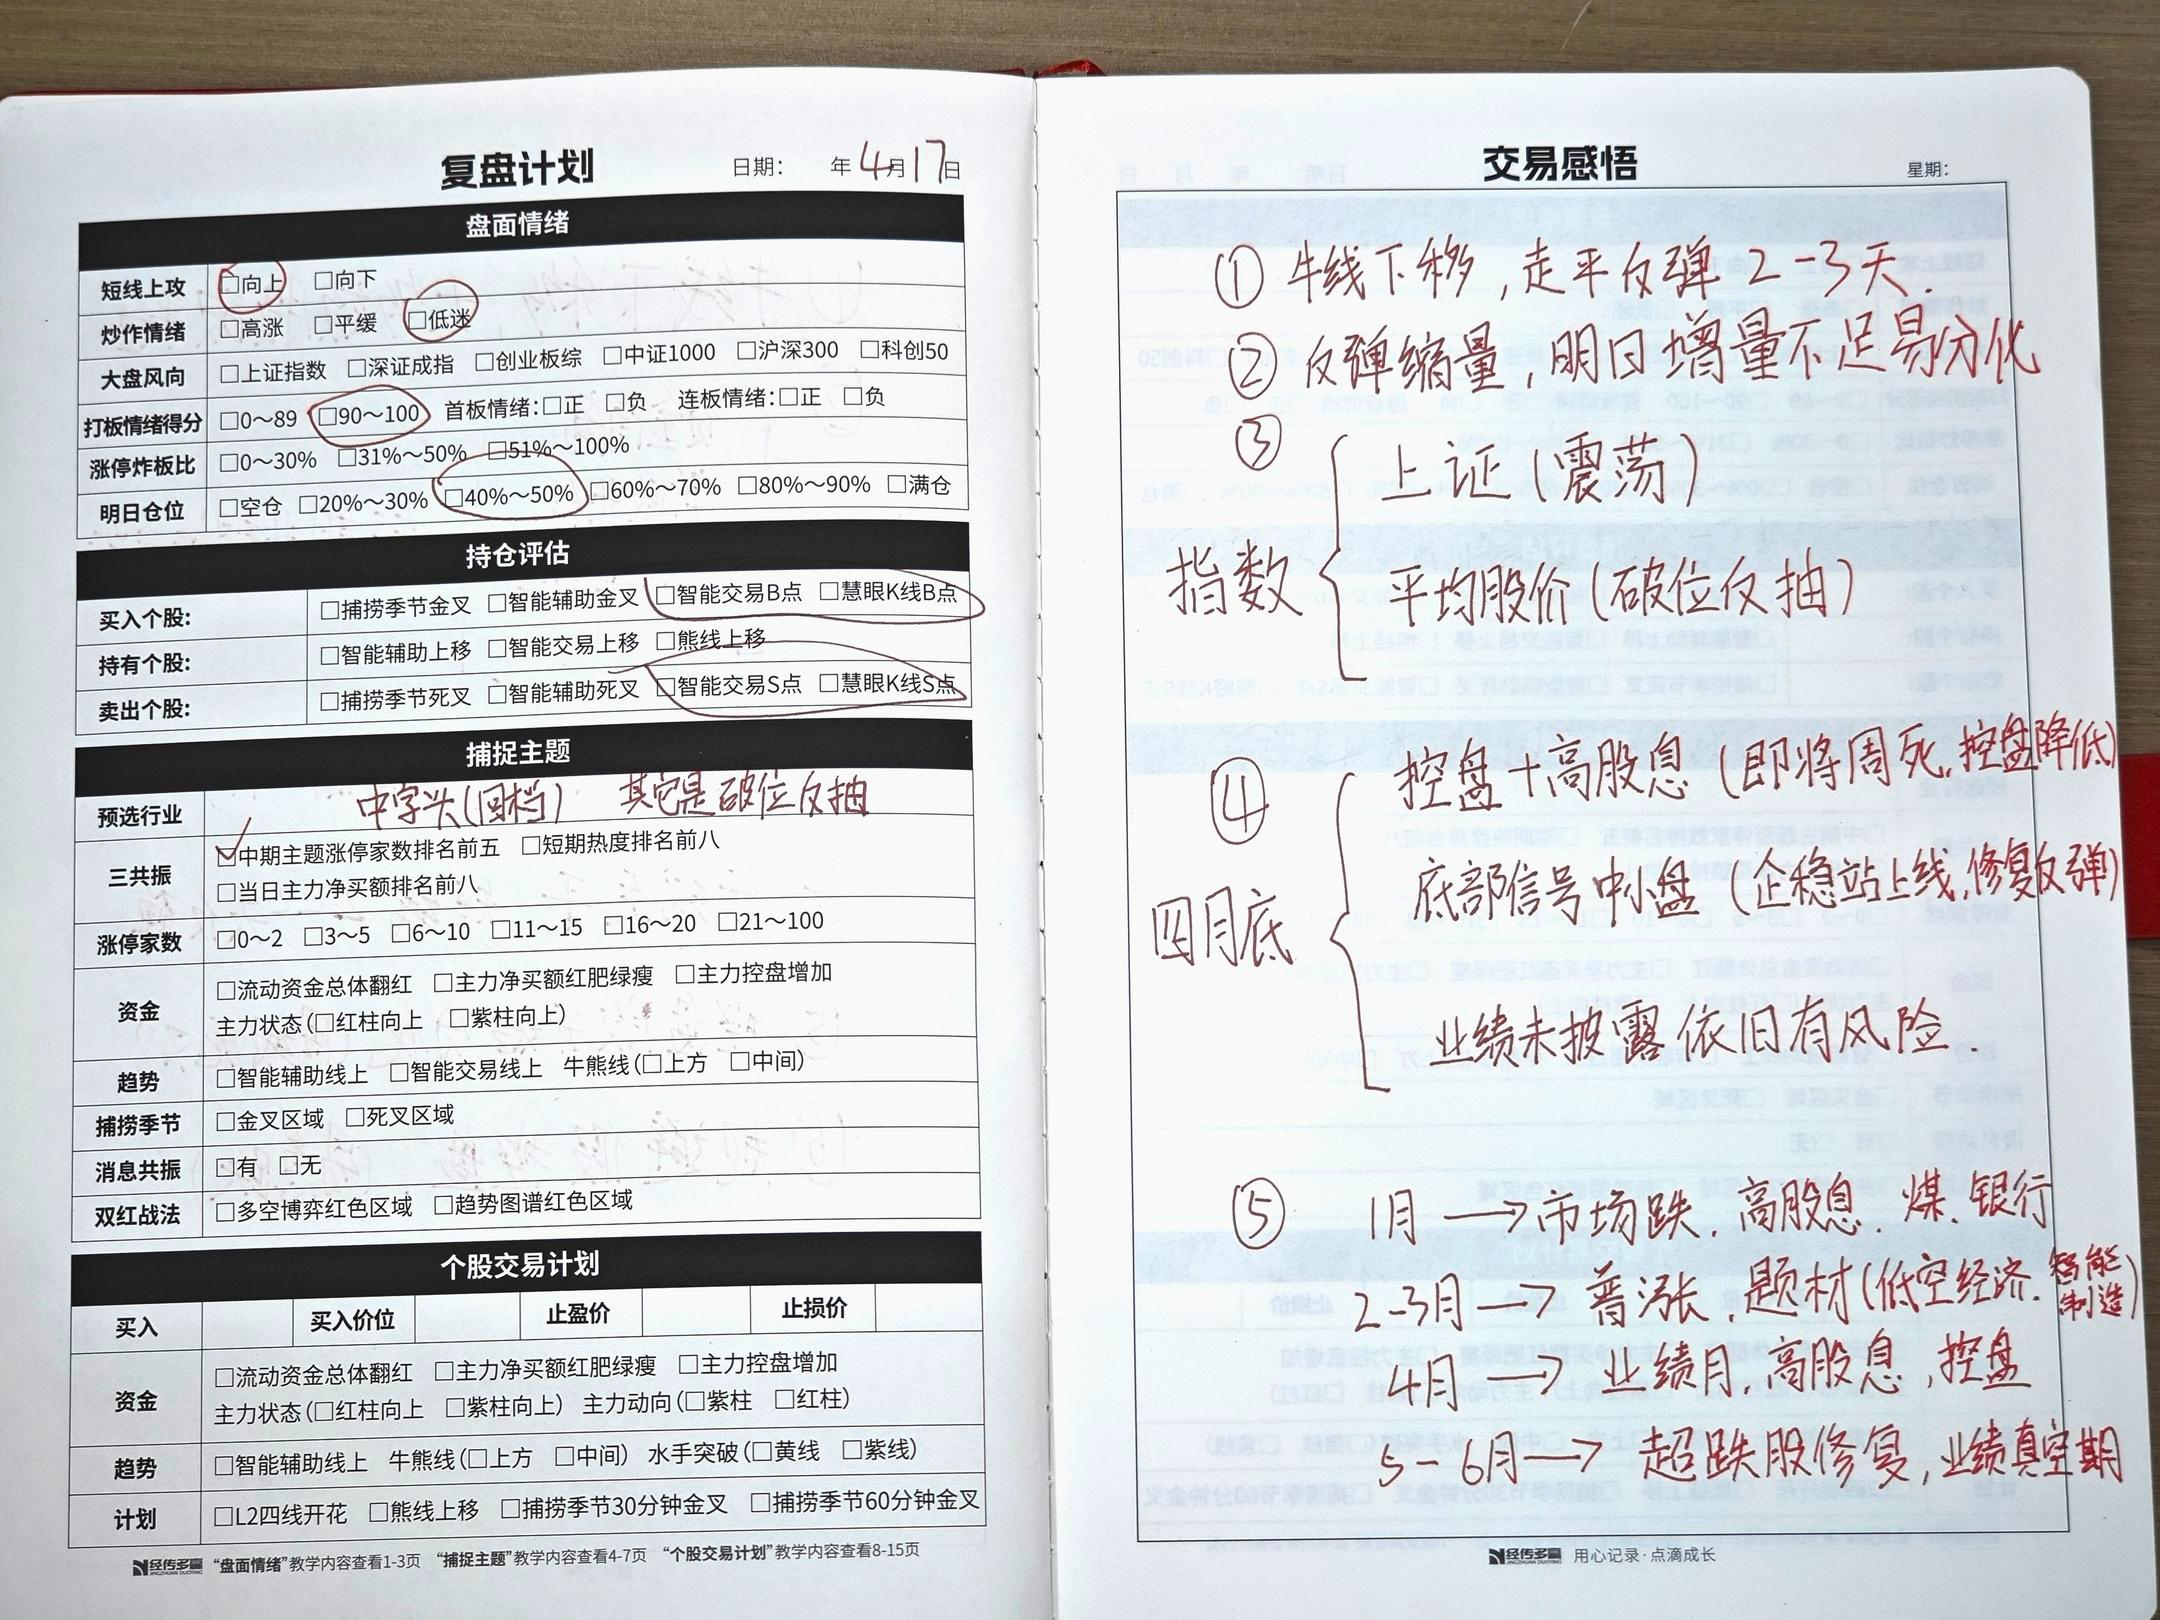 复盘计划 日期： 年 4月17日
盘面情绪
短线上攻 □向上 □向下
炒作情绪 □高涨 □平缓 □低迷
大盘风向 □上证指数 □深证成指 □创业板综 □中证1000 □沪深300 □科创50
打板情绪得分 □0～89 □90～100 首板情绪：□正 □负 连板情绪：□正 □负
涨停炸板比 □0～30% □31%～50% □51%～100%
明日仓位 □空仓 □20%～30% □40%～50% □60%～70% □80%～90% □满仓
持仓评估
买入个股： □捕捞季节金叉 □智能辅助金叉 □智能交易B点 □慧眼K线B点
持有个股： □智能辅助上移 □智能交易上移 □熊线上移
卖出个股： □捕捞季节死叉 □智能辅助死叉 □智能交易S点 □慧眼K线S点
捕捉主题
预选行业 中字头(回档) 其它是破位反抽
三共振 ☑中期主题涨停家数排名前五 □短期热度排名前八
□当日主力净买额排名前八
涨停家数 □0～2 □3～5 □6～10 □11～15 □16～20 □21～100
资金 □流动资金总体翻红 □主力净买额红肥绿瘦 □主力控盘增加
主力状态(□红柱向上 □紫柱向上)
趋势 □智能辅助线上 □智能交易线上 牛熊线(□上方 □中间)
捕捞季节 □金叉区域 □死叉区域
消息共振 □有 □无
双红战法 □多空博弈红色区域 □趋势图谱红色区域
个股交易计划
买入 买入价位 止盈价 止损价
资金 □流动资金总体翻红 □主力净买额红肥绿瘦 □主力控盘增加
主力状态(□红柱向上 □紫柱向上) 主力动向(□紫柱 □红柱)
趋势 □智能辅助线上 牛熊线(□上方 □中间) 水手突破(□黄线 □紫线)
计划 □L2四线开花 □熊线上移 □捕捞季节30分钟金叉 □捕捞季节60分钟金叉
经传多赢 JINGZHUAN DUOYING “盘面情绪”教学内容查看1-3页 “捕捉主题”教学内容查看4-7页 “个股交易计划”教学内容查看8-15页
交易感悟 星期：
① 牛线下移，走平反弹2-3天.
② 反弹缩量，明日增量不足易分化
③ 上证(震荡)
指数
平均股价(破位反抽)
④ 控盘+高股息(即将周死,控盘降低)
底部信号中小盘(企稳站上线,修复反弹)
四月底
业绩未披露依旧有风险
⑤ 1月→市场跌.高股息.煤.银行
2-3月→普涨.题材(低空经济.智能制造)
4月→业绩月,高股息,控盘
5-6月→超跌股修复,业绩真空期
经传多赢 JINGZHUAN DUOYING 用心记录·点滴成长